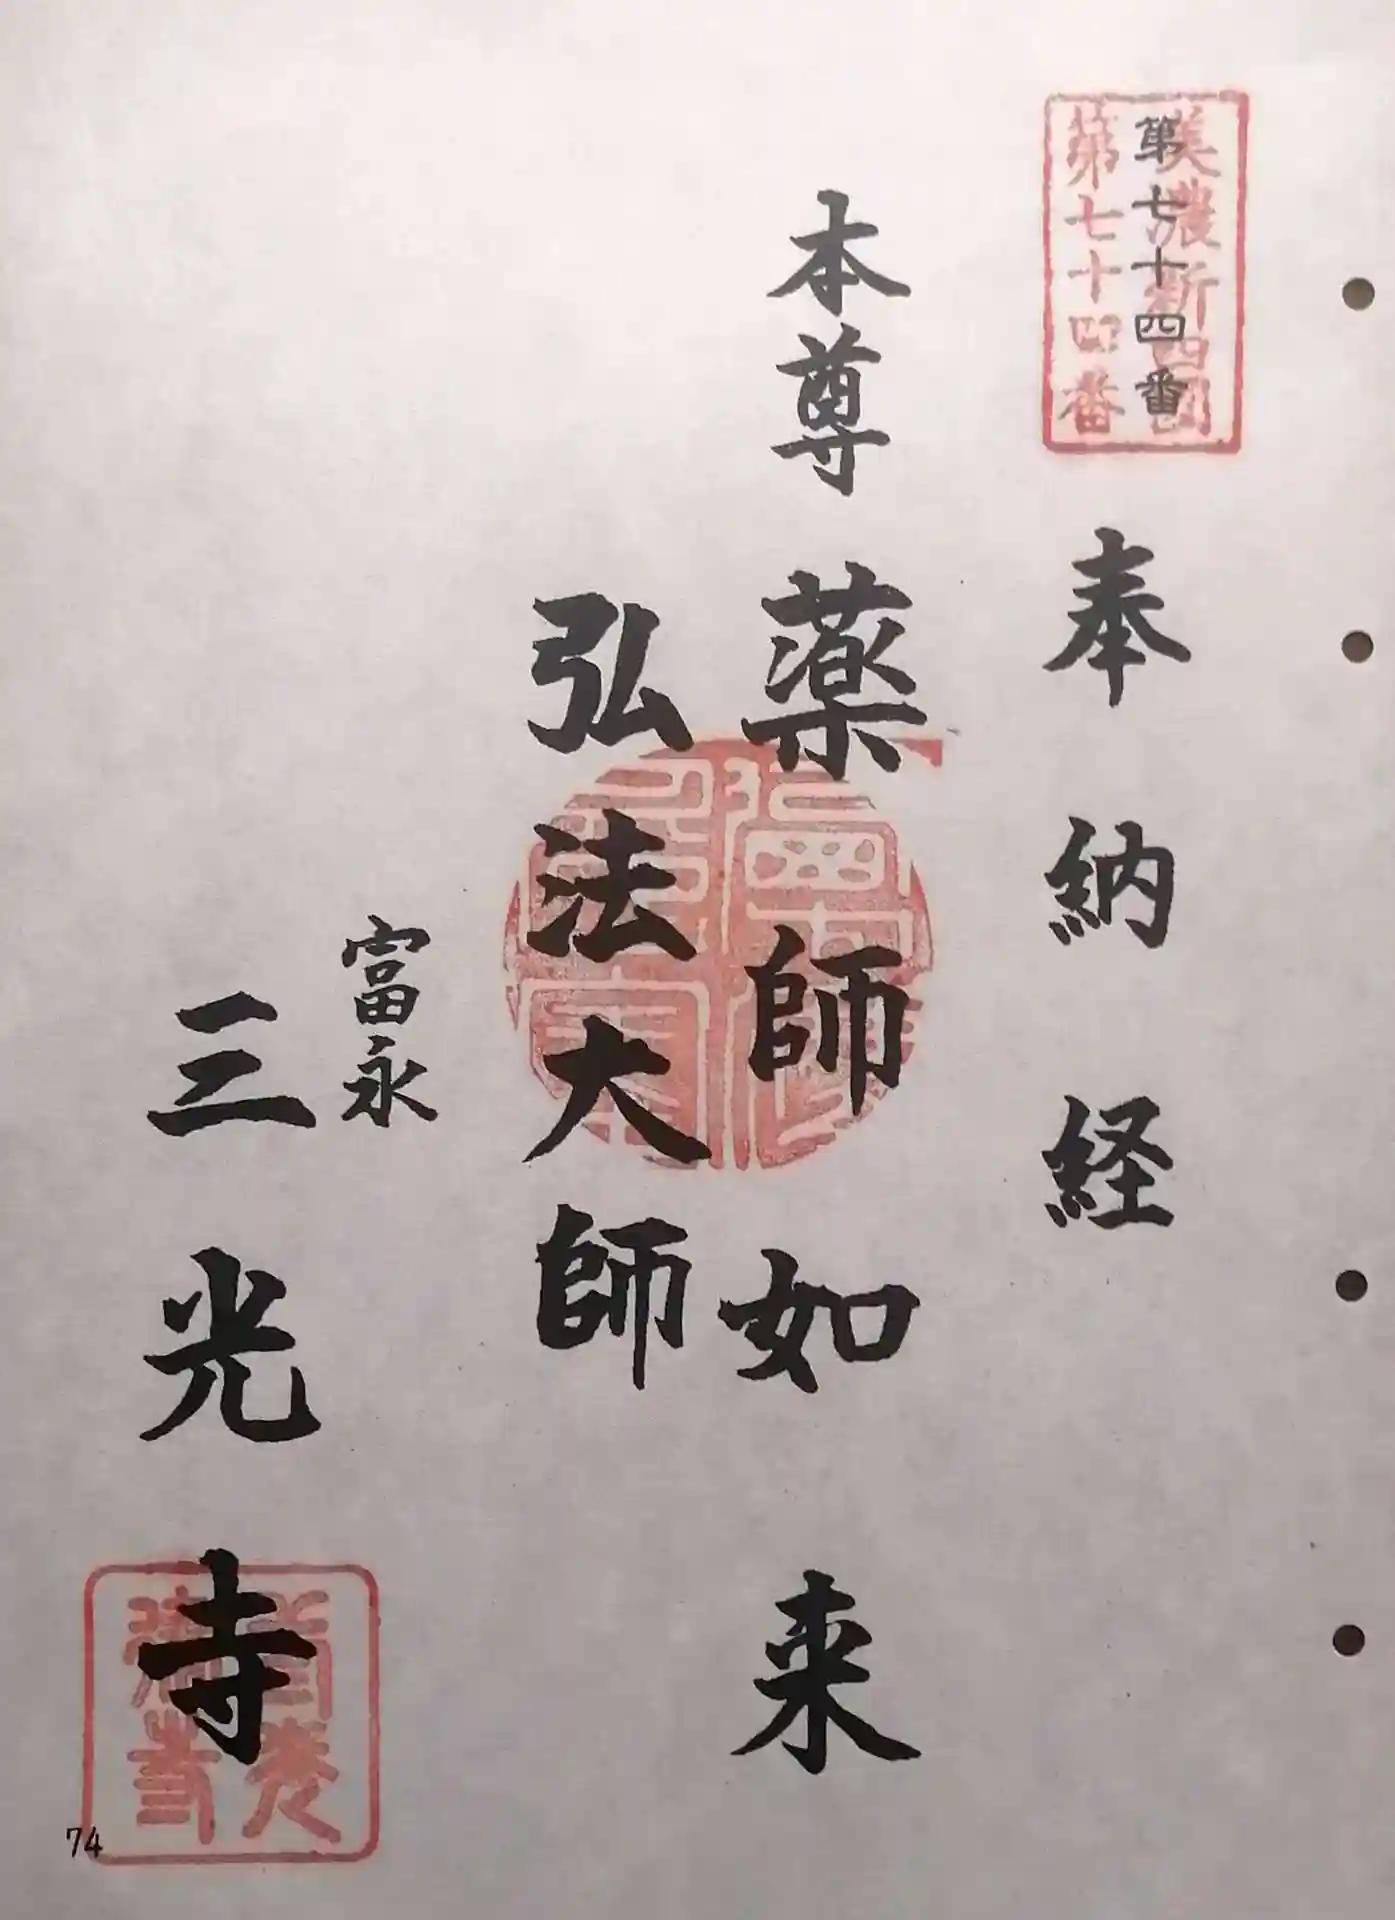 美濃新四國
第七十四番
第七十四番
奉納経
本尊 薬師如来
弘法大師
富永
三光寺
74